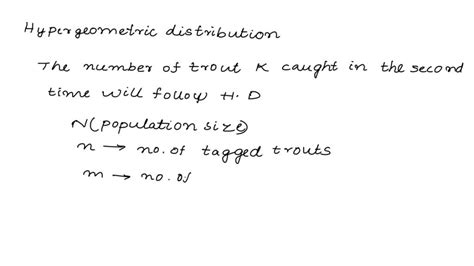 Hypergeometric distribution
The number of trout K caught in the second
time will follow H.D
N(population size)
n → no. of tagged trouts
m → no. of